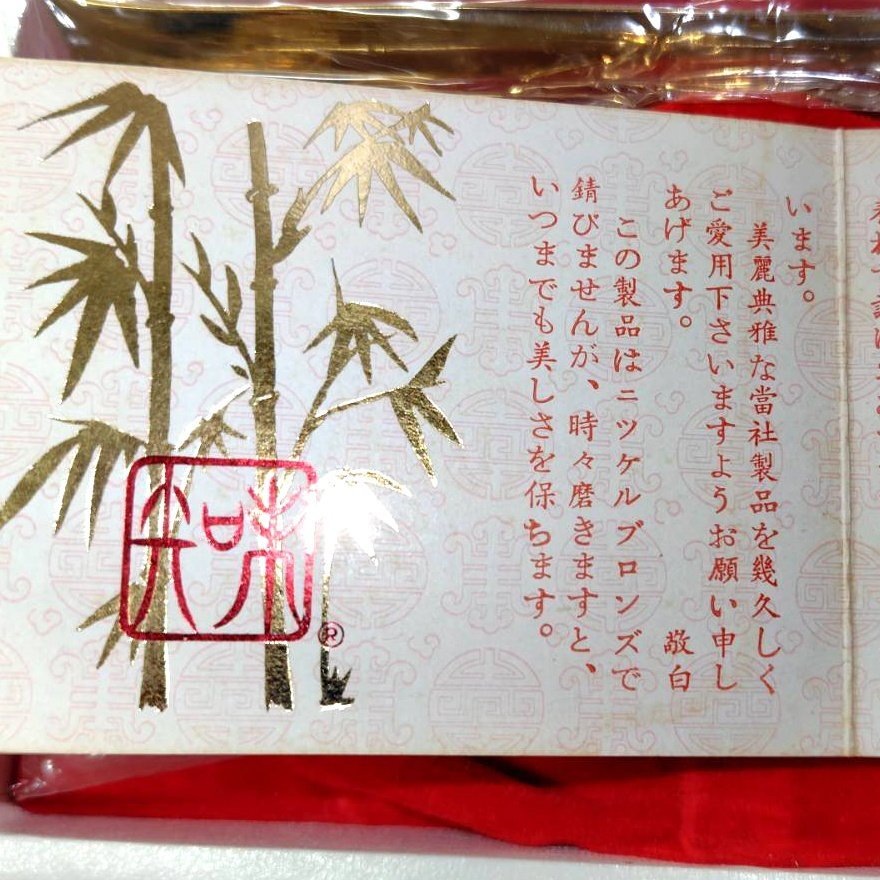 います。
美麗典雅な當社製品を幾久しく
ご愛用下さいますようお願い申し
あげます。 敬白
この製品はニツケルブロンズで
錆びませんが、時々磨きますと、
いつまでも美しさを保ちます。
®